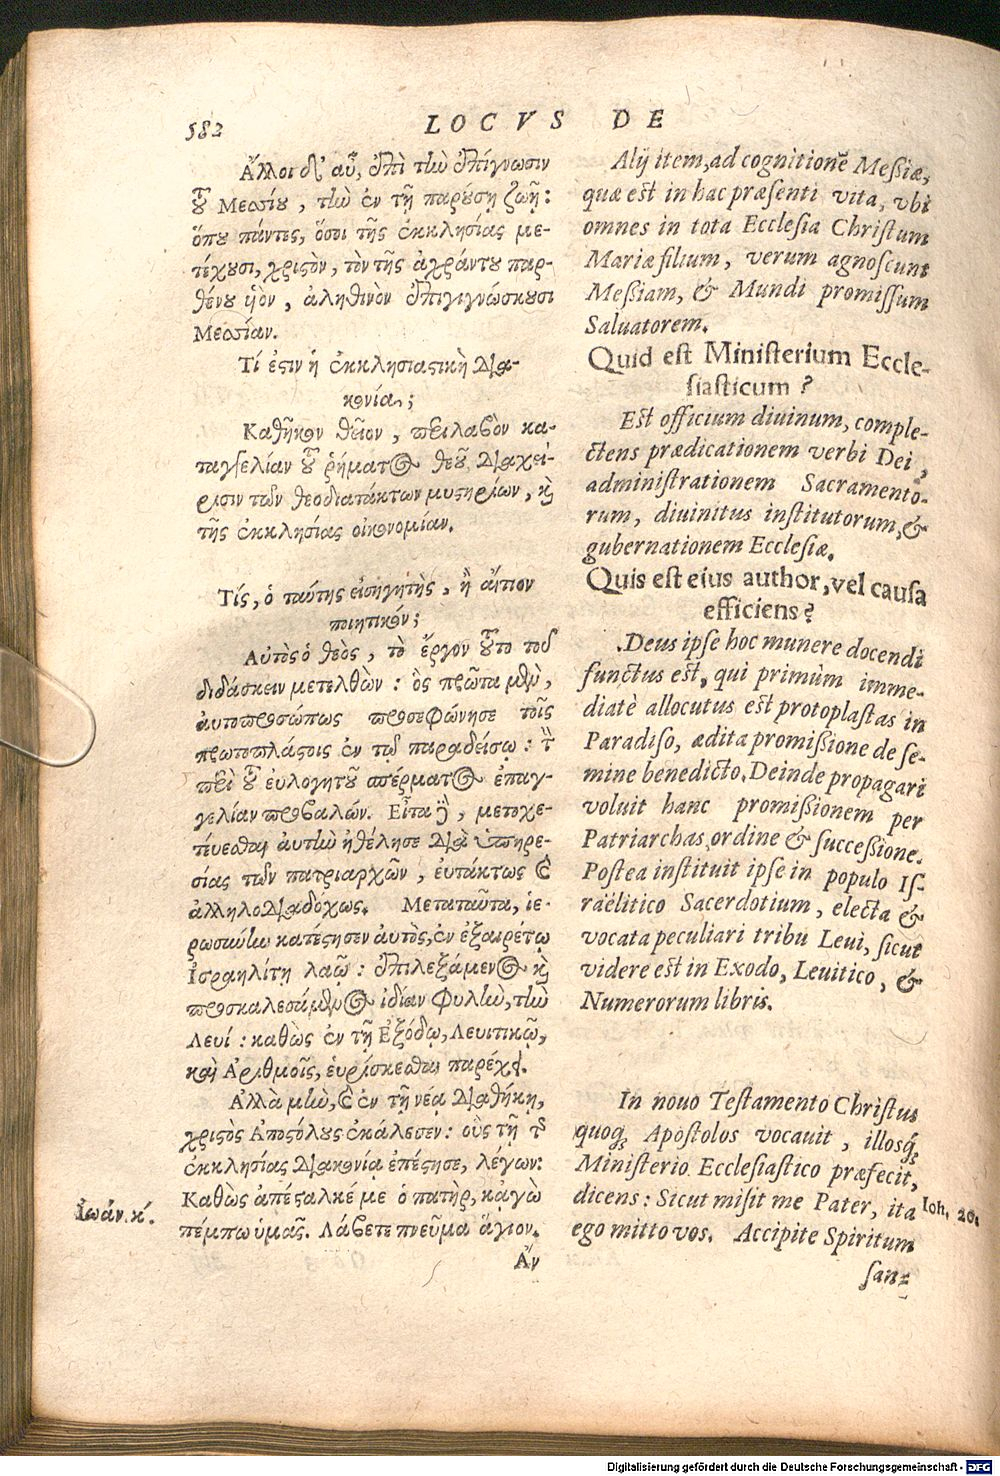 582
LOCVS DE
Ἄλλοι δ' αὖ, ἐπὶ τὴν ἐπίγνωσιν
τοῦ Μεσσίου, τὴν ἐν τῇ παρούσῃ ζωῇ:
ὅπου πάντες, ὅσοι τῆς ἐκκλησίας με-
τέχουσι, χριστὸν, τὸν τῆς ἀχράντου παρ-
θένου υἱὸν, ἀληθινὸν ἐπιγιγνώσκουσι
Μεσσίαν.
Τί ἐστιν ἡ ἐκκλησιαστικὴ δια-
κονία;
Καθῆκον θεῖον, περιλαβὸν κα-
ταγγελίαν τοῦ ῥήματος θεοῦ, διαχεί-
ρισιν τῶν θεοδιατάκτων μυστηρίων, καὶ
τῆς ἐκκλησίας οἰκονομίαν.
Τίς, ὁ ταύτης εἰσηγητὴς, ἢ αἴτιον
ποιητικόν;
Αὐτὸς ὁ θεὸς, τὸ ἔργον τοῦτο τοῦ
διδάσκειν μετελθὼν: ὃς πρῶτα μὲν,
αὐτοπροσώπως προσεφώνησε τοῖς
πρωτοπλάστοις ἐν τῷ παραδείσῳ: τὴν
περὶ τοῦ εὐλογητοῦ σπέρματος ἐπαγ-
γελίαν προβαλών. Εἶτα δὲ, μετοχε-
τεύεσθαι αὐτὴν ἠθέλησε διὰ ὑπηρε-
σίας τῶν πατριαρχῶν, εὐτάκτως καὶ
ἀλληλοδιαδόχως. Μεταταῦτα, ἱε-
ρωσύνην κατέστησεν αὐτὸς, ἐν ἐξαιρέτῳ
Ἰσραηλίτῃ λαῷ: ἐπιλεξάμενος καὶ
προσκαλεσάμενος ἰδίαν φυλὴν, τὴν
Λευί: καθὼς ἐν τῇ Ἐξόδῳ, Λευιτικῷ,
καὶ Ἀριθμοῖς, εὑρίσκεσθαι παρέχει.
Ἀλλὰ μὴν, καὶ ἐν τῇ νέᾳ διαθήκῃ,
χριστὸς Ἀποστόλους ἐκάλεσεν: οὓς τῇ τῆς
ἐκκλησίας διακονίᾳ ἐπέστησε, λέγων:
Καθὼς ἀπέσταλκέ με ὁ πατὴρ, κᾀγὼ
πέμπω ὑμᾶς. Λάβετε πνεῦμα ἅγιον.
Ἂν
Ἰωάν. κʹ.
Alij item, ad cognitionē Meßiæ,
quæ est in hac præsenti vita, vbi
omnes in tota Ecclesia Christum
Mariæ filium, verum agnoscunt
Meßiam, & Mundi promissum
Saluatorem.
Quid est Ministerium Eccle-
siasticum?
Est officium diuinum, comple-
ctens prædicationem verbi Dei,
administrationem Sacramento-
rum, diuinitus institutorum, &
gubernationem Ecclesiæ.
Quis est eius author, vel causa
efficiens?
Deus ipse hoc munere docendi
functus est, qui primùm imme-
diatè allocutus est protoplastas in
Paradiso, ædita promißione de se-
mine benedicto. Deinde propagari
voluit hanc promißionem per
Patriarchas ordine & succeßione.
Postea instituit ipse in populo Is-
raëlitico Sacerdotium, electa &
vocata peculiari tribu Leui, sicut
videre est in Exodo, Leuitico, &
Numerorum libris.
In nouo Testamento Christus
quoq; Apostolos vocauit, illosq;
Ministerio Ecclesiastico præfecit,
dicens: Sicut misit me Pater, ita
ego mitto vos. Accipite Spiritum
san-
Ioh. 20.
Digitalisierung gefördert durch die Deutsche Forschungsgemeinschaft - DFG